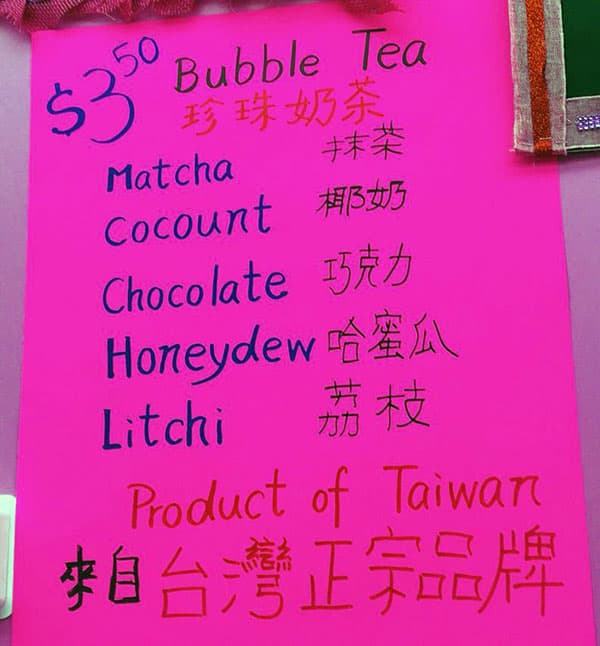 $3.50 Bubble Tea
珍珠奶茶
Matcha 抹茶
Cocount 椰奶
Chocolate 巧克力
Honeydew 哈蜜瓜
Litchi 荔枝
Product of Taiwan
來自台灣正宗品牌